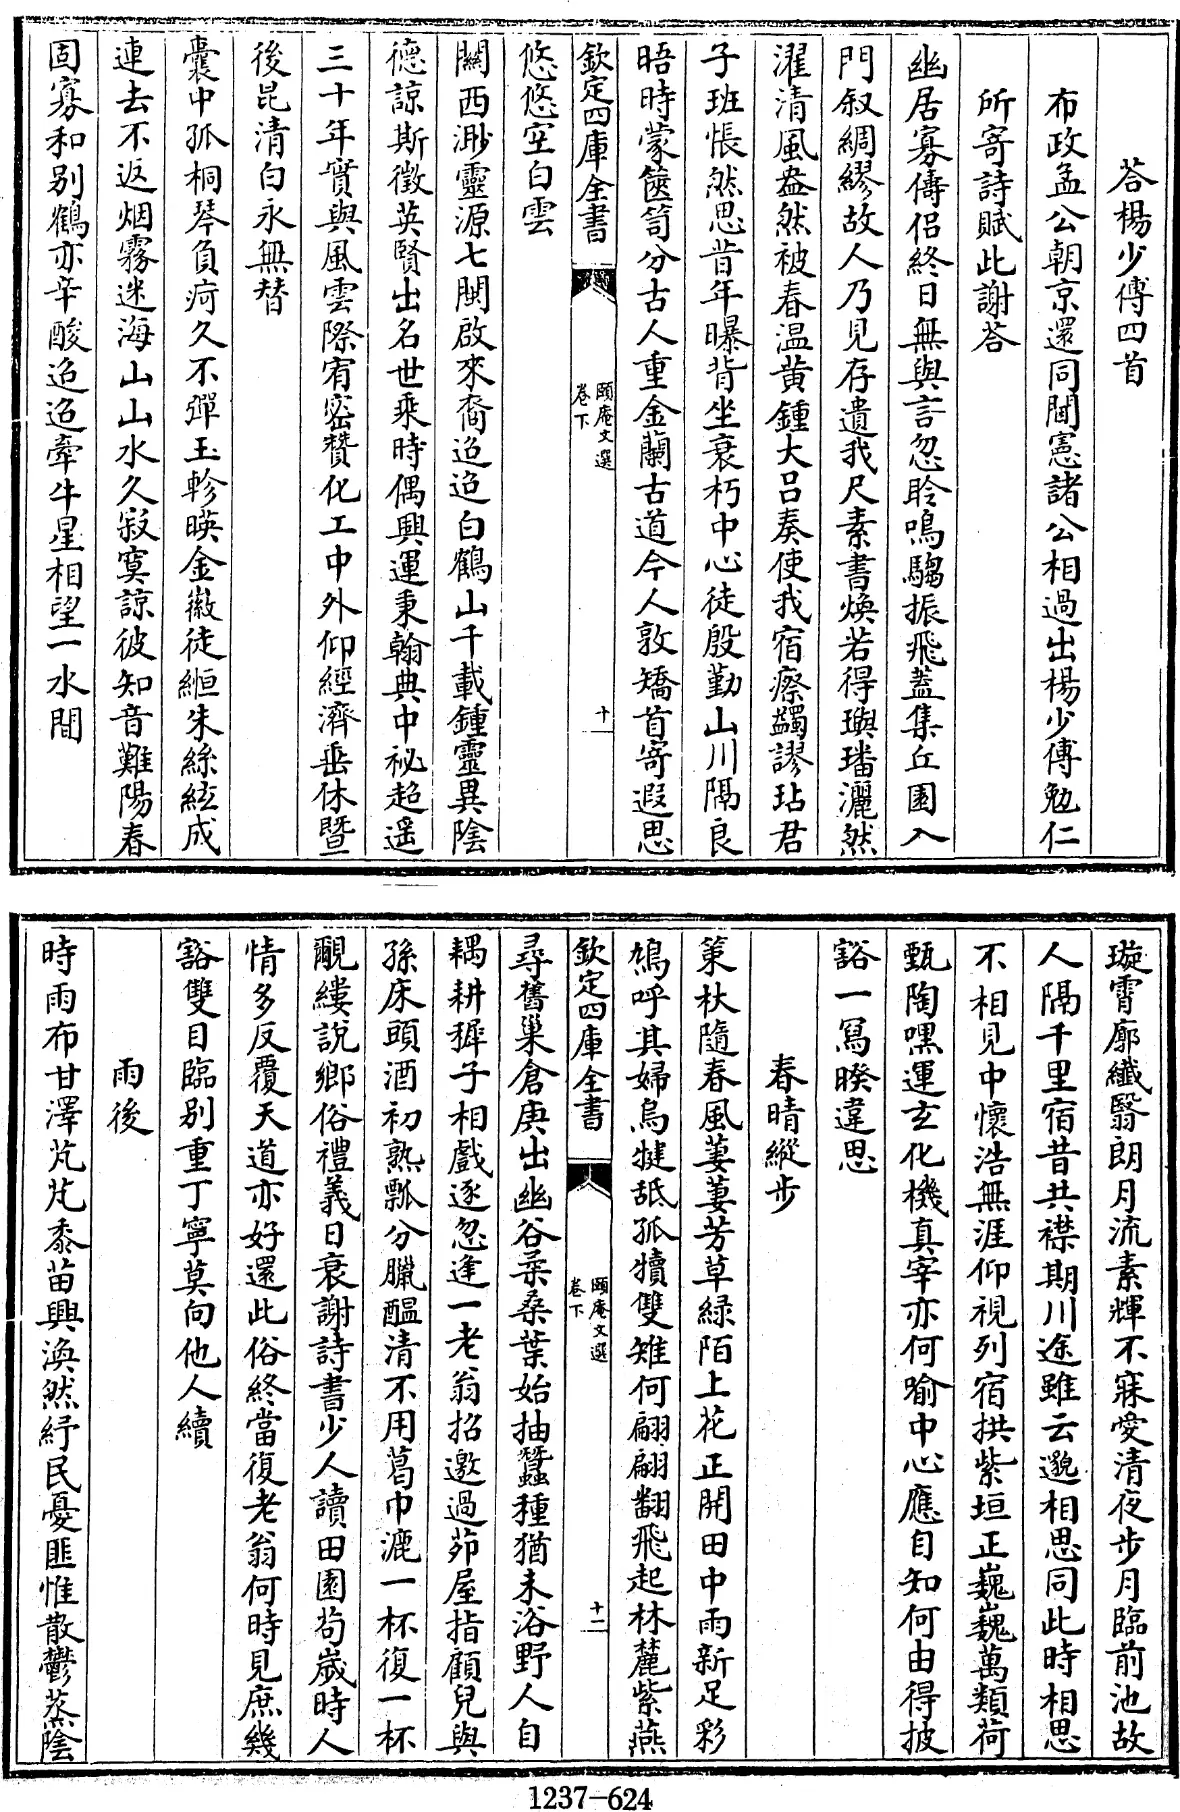 荅楊少傅四首
布政孟公朝京還同閫憲諸公相過出楊少傅勉仁
所寄詩賦此謝荅
幽居寡儔侣終日無與言忽聆鳴騶振飛蓋集丘園入
門叙綢繆故人乃見存遺我尺素書煥若得璵璠灑然
濯清風盎然被春温黄鍾大吕奏使我宿瘵蠲謬玷君
子班悵然思昔年曝背坐衰朽中心徒殷勤山川隔良
晤時蒙篋笥分古人重金蘭古道今人敦矯首寄遐思
欽定四庫全書
頤庵文選
卷下
十一
悠悠空白雲
關西渺靈源七閩啟來裔迢迢白鶴山千載鍾靈異陰
德諒斯徵英賢出名世乘時偶興運秉翰典中祕超遥
三十年實與風雲際宥密贊化工中外仰經濟垂休暨
後昆清白永無替
囊中孤桐琴負疴久不彈玉軫暎金徽徒緪朱絲絃成
連去不返烟霧迷海山山水久寂寞諒彼知音難陽春
固寡和别鶴亦辛酸迢迢牽牛星相望一水間
璇霄廓纎翳朗月流素輝不寐愛清夜步月臨前池故
人隔千里宿昔共襟期川途雖云邈相思同此時相思
不相見中懷浩無涯仰視列宿拱紫垣正巍巍萬類荷
甄陶嘿運玄化機真宰亦何喻中心應自知何由得披
豁一冩暌違思
春晴縱步
䇿杖隨春風萋萋芳草緑陌上花正開田中雨新足彩
鳩呼其婦烏㹀舐孤犢雙雉何翩翩翻飛起林麓紫燕
欽定四庫全書
頤庵文選
卷下
十二
尋舊巢倉庚出幽谷柔桑葉始抽蠶種猶未浴野人自
耦耕穉子相戲逐忽逢一老翁招邀過茆屋指顧兒與
孫床頭酒初熟瓢分臘醖清不用葛巾漉一杯復一杯
覼縷説鄉俗禮義日衰謝詩書少人讀田園苟歲時人
情多反覆天道亦好還此俗終當復老翁何時見庶幾
豁雙目臨别重丁寧莫向他人續
雨後
時雨布甘澤芃芃黍苗興渙然紓民憂匪惟散鬱蒸陰
1237—624